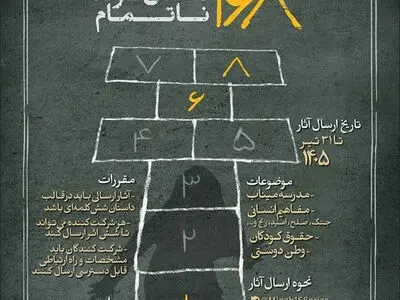 ۱۶۸
ناتمام
۷
۸
۶
۴
۵
۳
۲
۱
تاریخ ارسال آثار
تا ۳۱ تیر
۱۴۰۵
موضوعات
- مدرسه میناب
- مفاهیم انسانی
جنگ، صلح، امید، رنج و...
- حقوق کودکان
- وطن دوستی
نحوه ارسال آثار
مقررات
- آثار ارسالی باید در قالب
داستان شش کلمه‌ای باشد
- هر شرکت کننده می تواند
تا شش اثر ارسال کند
- شرکت کنندگان باید
مشخصات و راه ارتباطی
قابل دسترسی ارسال کنند